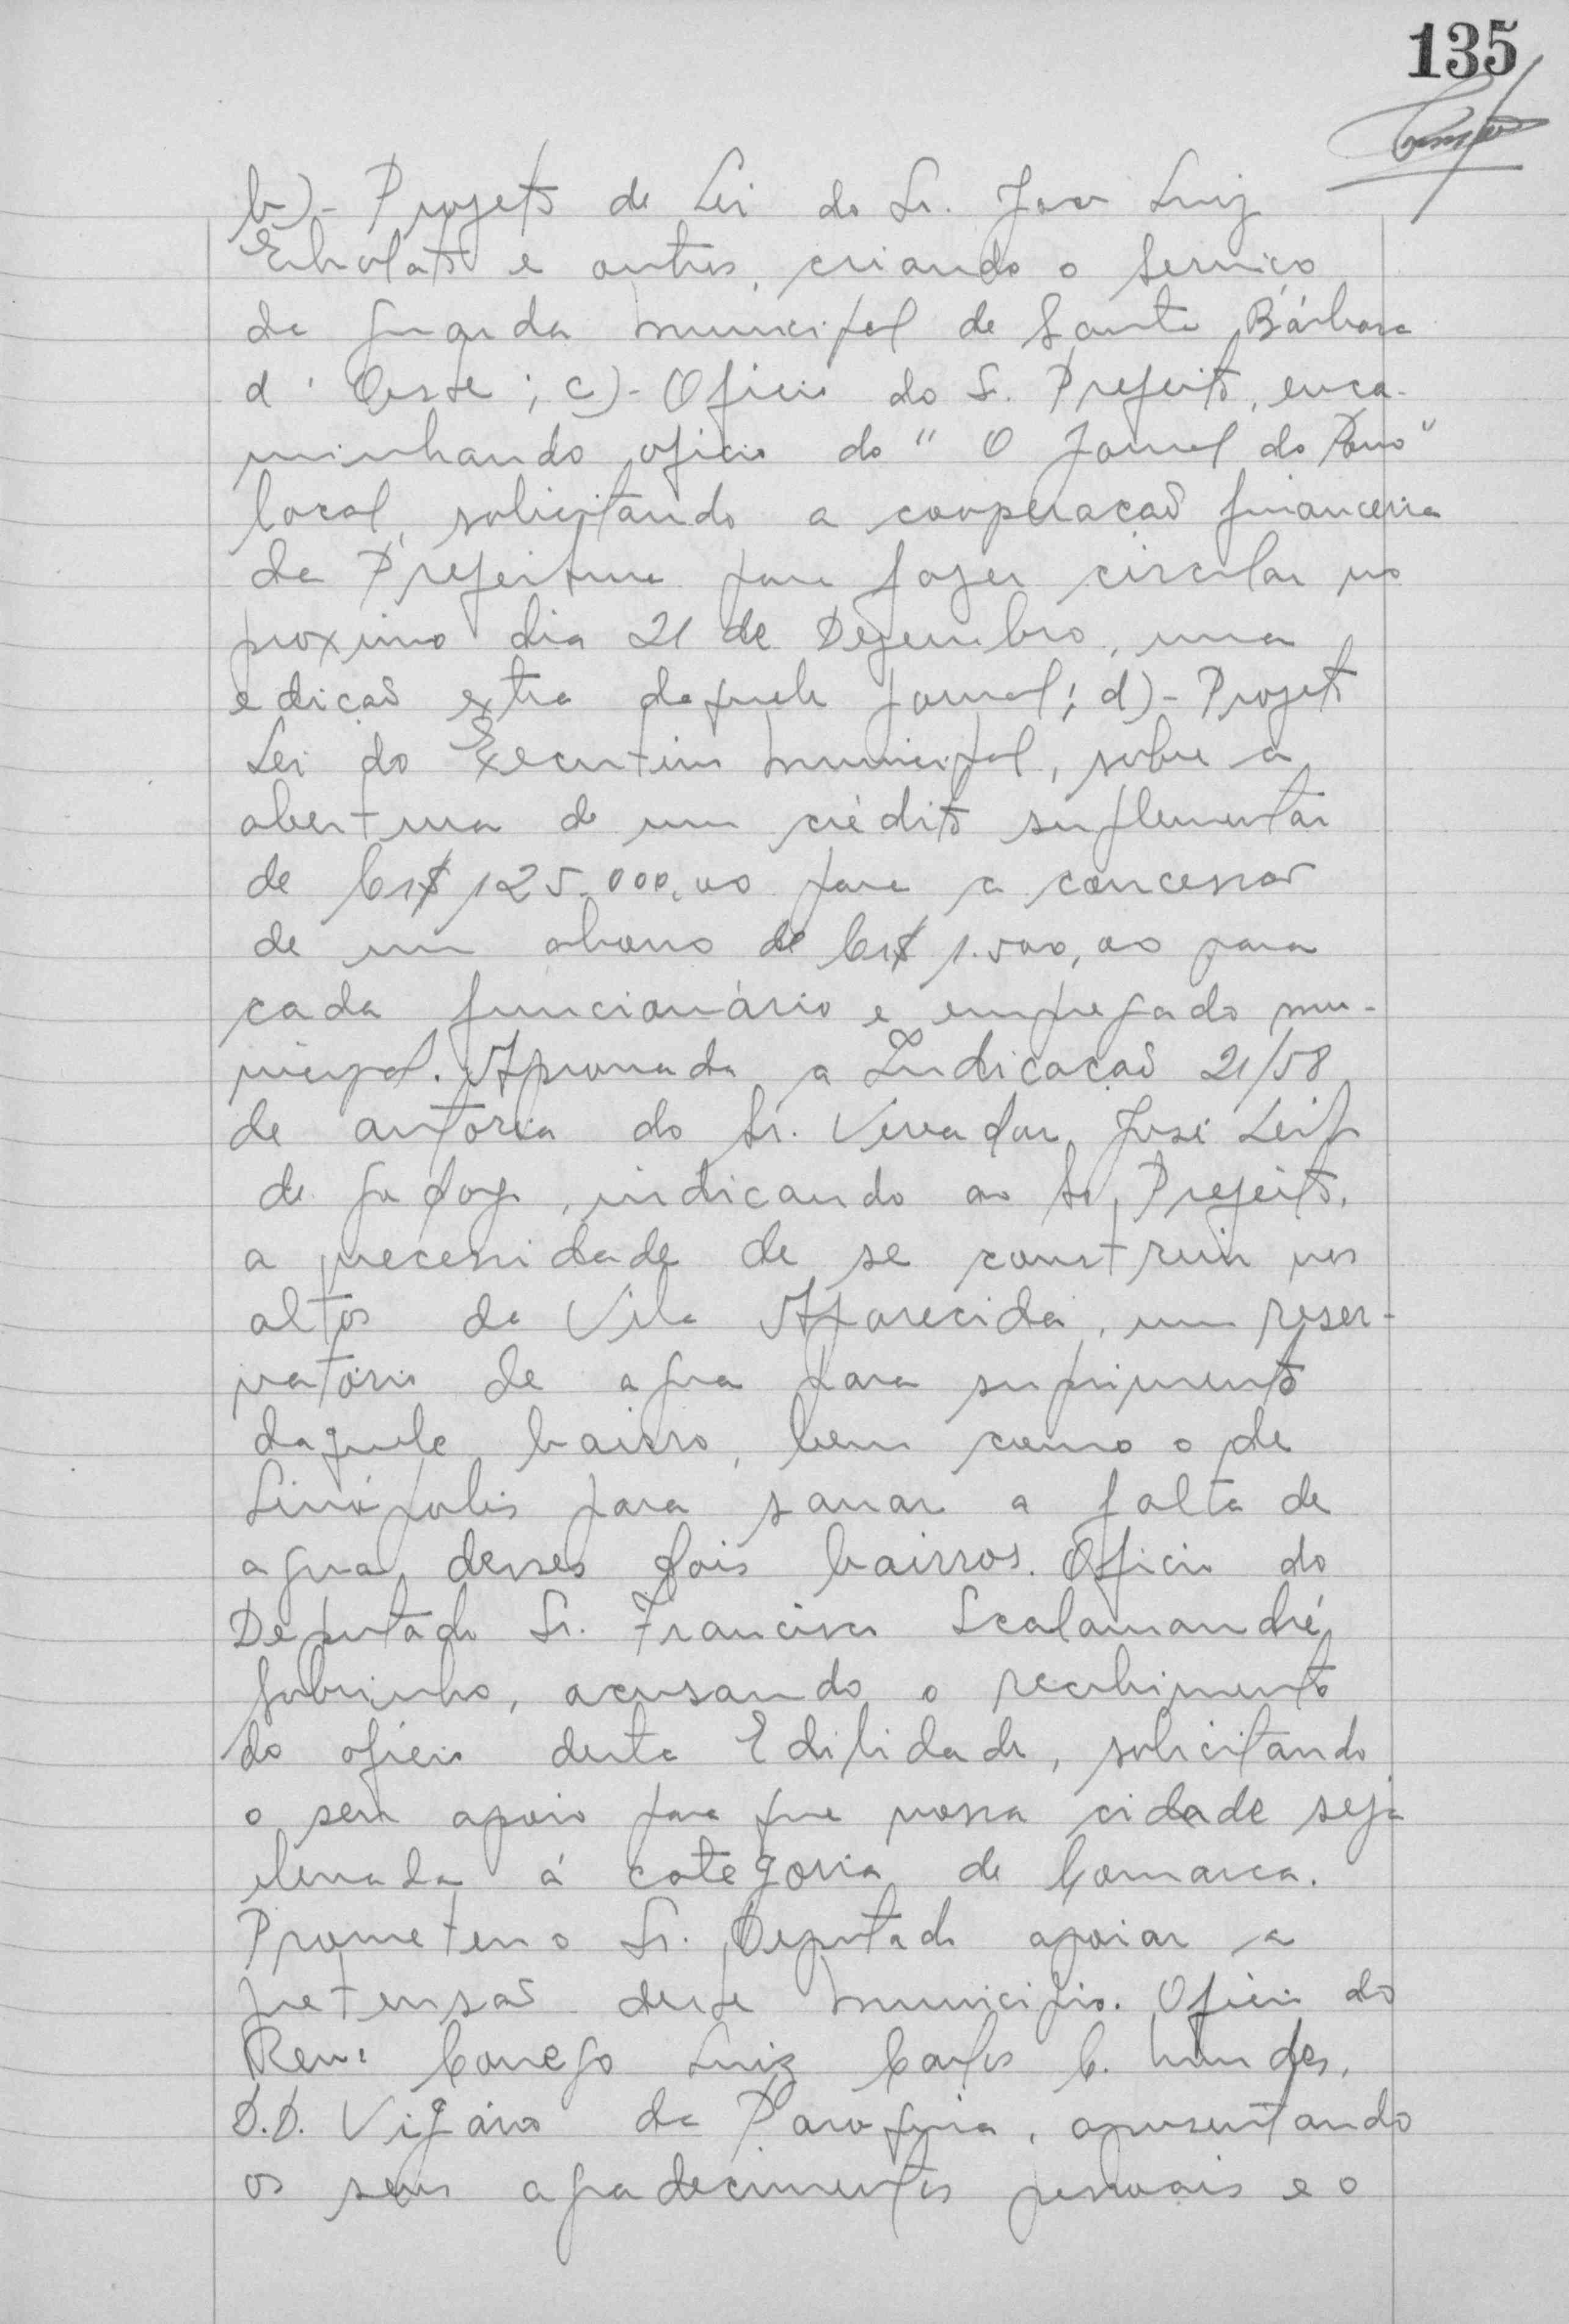 135
b)- Projeto de Lei do Sr. Joao Luiz
e outros, criando o serviço
da guarda municipal de Santa Bárbara
d'Oeste; c)- Oficio do Sr. Prefeito, enca-
minhando oficio do "O Jornal do Povo"
local, solicitando a cooperaçaõ financeira
da Prefeitura para fazer circular no
proximo dia 21 de Dezembro, uma
ediçaõ extra daquele jornal; d)- Projeto
Lei do Executivo Municipal, sobre a
abertura de um crédito suplementar
de Cr$ 125.000,00 para a concessaõ
de um abono de Cr$ 1.500,00 para
cada funcionário e empregado mu-
nicipal. Aprovada a Indicaçaõ 21/58
de autoria do Sr. Vereador José Leif
de , indicando ao Sr. Prefeito,
a necessidade de se construir nos
altos da Vila Aparecida, um reser-
vatório de agua para suprimento
daquele bairro, bem como o de
Linópolis para sanar a falta de
agua desses dois bairros. Oficio do
Deputado Sr. Francisco Scalamandré
Sobrinho, acusando o recebimento
do oficio desta Edilidade, solicitando
o seu apoio para que nossa cidade seja
elevada á categoria de Comarca.
Prometeu o Sr. Deputado apoiar a
pretensaõ deste Municipio. Oficio do
Revº Conego Luiz Carlos C. Mendes,
D.D. Vigário da Paroquia, apresentando
os seus agradecimentos pessoais e o